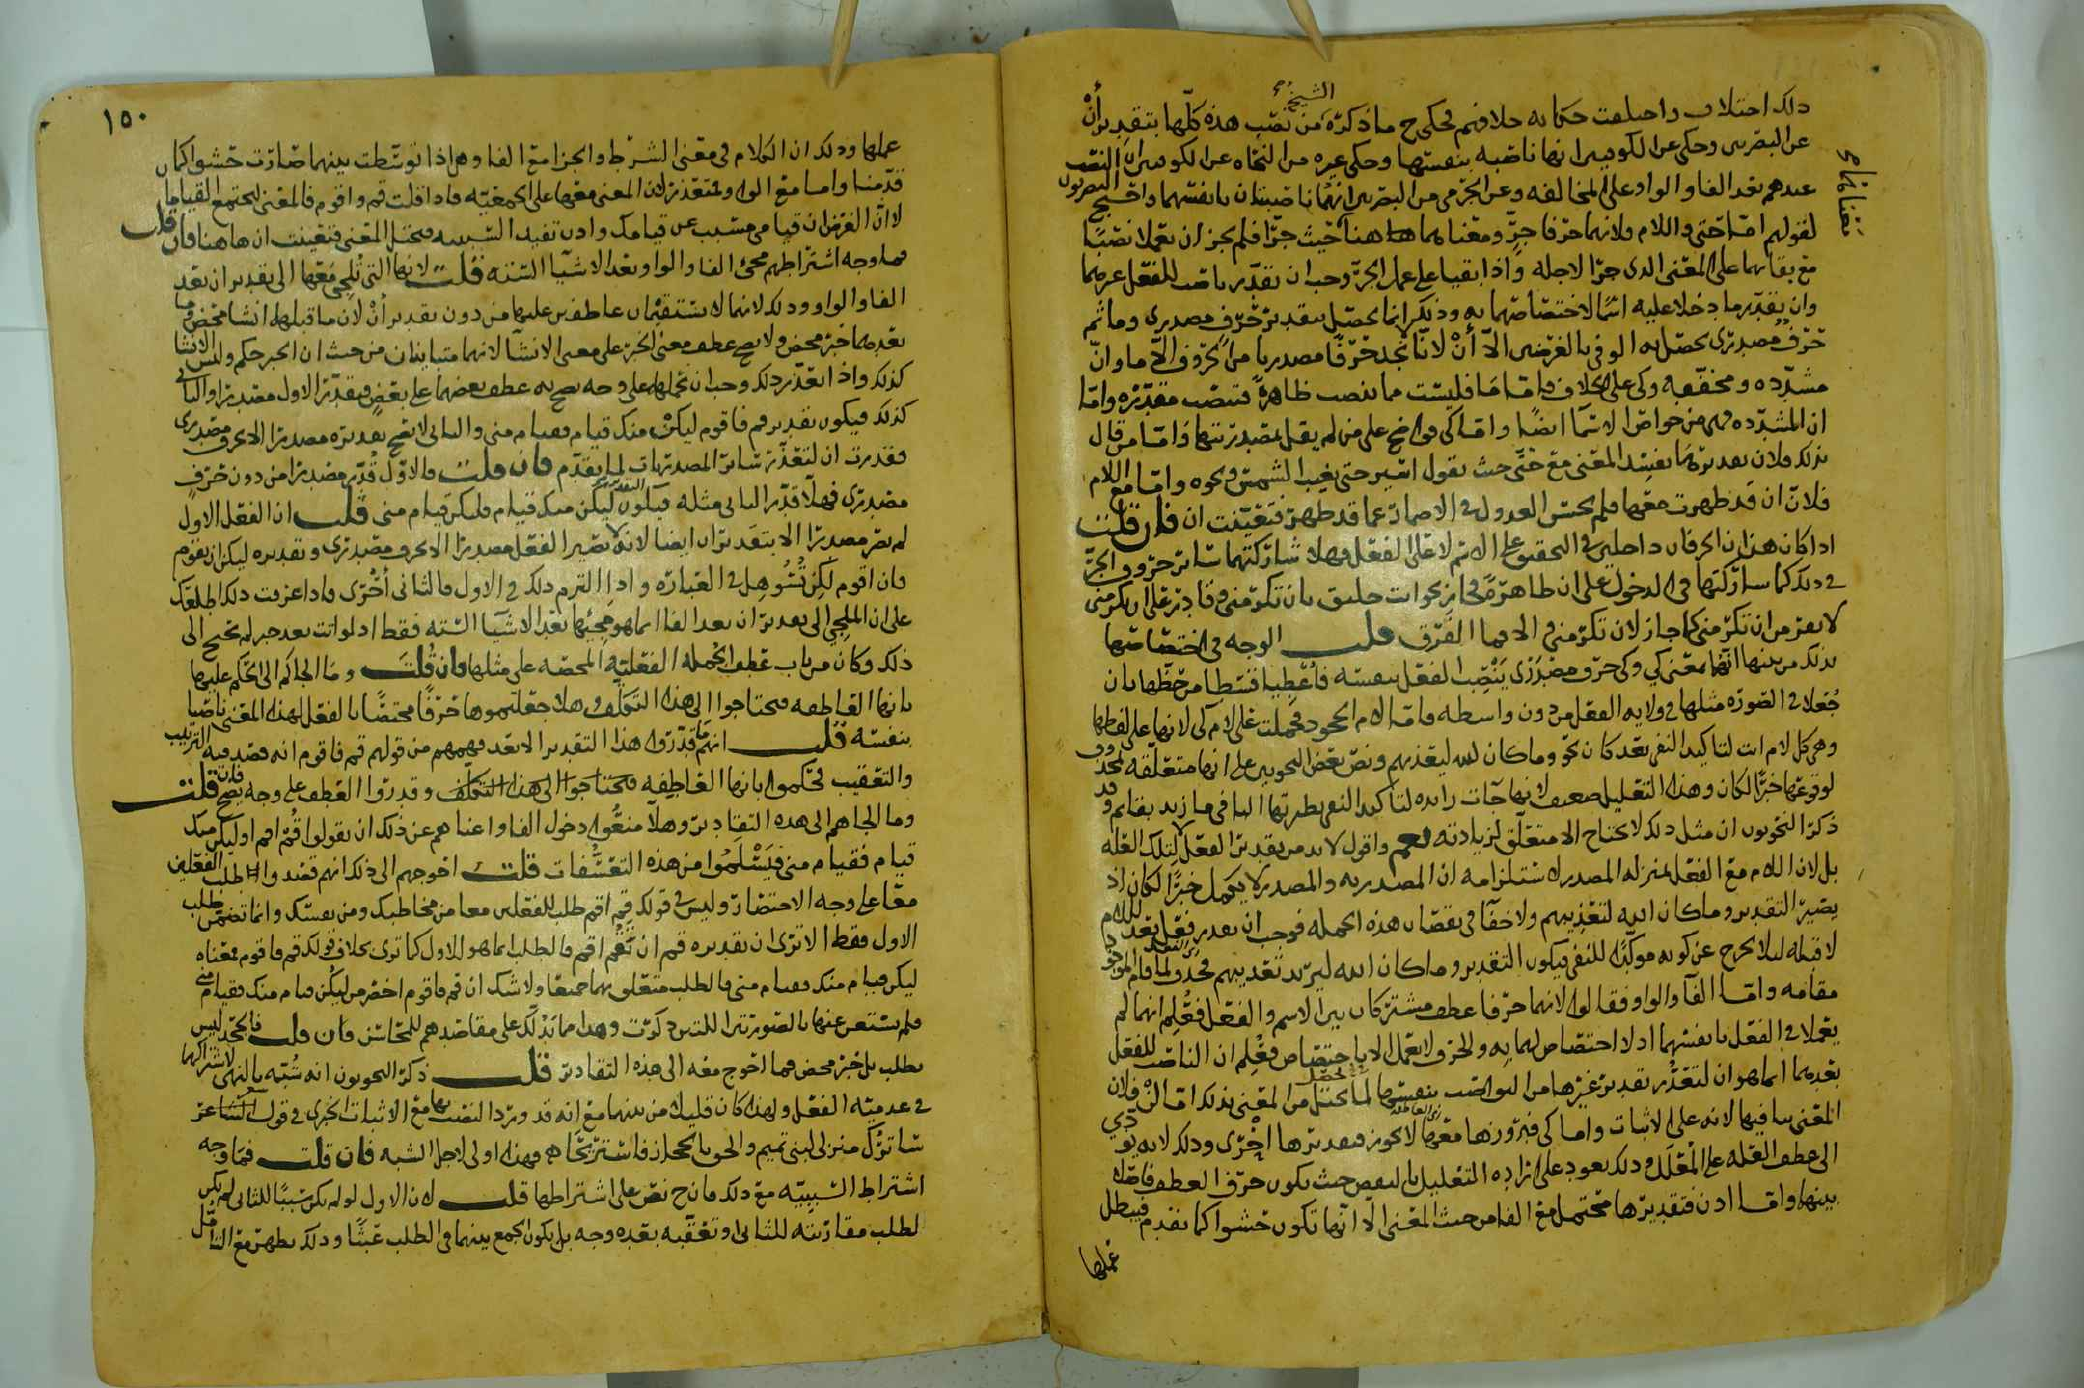 ذلك اختلاف واختلفت حكاية خلافهم فحكى ح ما ذكره الشيخ من نصب هذه كلها بتقدير أن
عن البصريين وحكى عن الكوفيين انها ناصبة بنفسها وحكى غيره من النحاه عن الكوفيين ان النصب
عندهم بعد الفا والواو على المخالفه وعن الجرمي من البصريين انهما ناصبتان بانفسهما واحتج البصريون
لقولهم امّا حتى واللام فلانهما حرفا جرٍّ ومعناهما هاهنا حيث جرّا فلم يجز ان يعملا نصبًا
مع بقائهما على المعنى الذي جرّا لاجله واذا بقيا على عمل الجرّ وجب ان نقدّر ناصب للفعل غيرهما
وان يقدّر ما دخلا عليه اسمًا لاختصاصهما به وذلك انما يحصل بتقدير حرف مصدري وما ثم
حرف مصدري يحصل به الوفي بالغرضين الا أنْ لانا نجد حرفًا مصدريا من الحروف الا ما وانّ
مشدّده ومخففه وكى على الخلاف فامّا ما فليست مما ينصب ظاهرةً فتنصب مقدّره وامّا
ان المشدّده فهي من خواص الاسما ايضًا واما كى فواضح على من لم يقل بمصدريتها وامّا من قال
بذلك فلان تقديرها يفسد المعنى مع حتّى حيث تقول اسير حتى يغيب الشمس ونحوه وامّا مع اللام
فلانّ ان قد ظهرت معها فلم يحسن العدول في الاضمار عما قد ظهر فتعيّنت ان فان قلت
اذا كان هذان الحرفان داخلين في التحقيق على الاسم لا على الفعل فهلا شاركتهما سائر حروف الجرّ
في ذلك كما شاركتها في الدخول على ان ظاهرةً فجاز نحو انت حليق بان تكرمني وقادر على ان تكرمني
لا يفر من ان تكرمني كما جاز لان تكرمني والا فما الفرق قلت الوجه في اختصاصها
بذلك من بينها انهما بمعنى كي وكي حرف مصدري ينصب الفعل بنفسه فأُعْطِيا قسطا من حظّها بان
جُعلا في الصورة مثلها في ولايه الفعل من دون واسطه فامّا لام الجحود فحملت على لام كي لانها على لفظها
وهي كل لام اتت لتاكيد النفي بعد كان نحو وما كان الله ليعذبهم ونص بعض النحويين على انها متعلقه بمحذوف
لوقوعها خبرًا لكان وهذا التعليل ضعيف لانها جات زايده لتاكيد النفي نظيرتها البا في ما زيد بقايم وقد
ذكر النحويون ان مثل ذلك لا يحتاج الا متعلّق لزيادته نعم واقول لابد من تقدير الفعل لا لتلك العله
بل لان اللام مع الفعل بمنزله المصدر لاستلزامه ان المصدريه والمصدر لا يكمل خبرًا لكان اذ
يصير التقدير وما كان الله لتعذيبهم ولا خفا في نقصان هذه الجمله فوجب ان نقدر فعلا بعد اللام
لا قبله ليلا يخرج عن كونه موكّدًا للنفي فيكون التقدير وما كان الله ليريد تعذيبهم
مقامه وامّا الفآ والواو فقالوا لانهما حرفا عطف مشتركان بين الاسم والفعل فعُلِم انهما لم
يعملا في الفعل بانفسهما اذ لا اختصاص لهما به والحرف لا يعمل الا باختصاص فعُلم ان الناصب للفعل
بعدهما انما هو ان لتعذّر تقدير غيرها من النواصب بنفسها لما يختل من المعنى بذلك امّا لن فلان
المعنى ينافيها لانه على الاثبات واما كى فبروزها معهما لا يجوز فتقديرها أحرى وذلك لانه يودي
الى عطف العله على المعلل وذلك يعود على ارادة التعليل بالنقض حيث يكون حرف العطف فاصلا
بينها واما اذن فتقديرها محتمل مع الفا من حيث المعنى الا انّها تكون حشوا كما نقدم فيبطل
عملها
١٥٠
عملها وذلك ان الكلام في معنى الشرط والجزا مع الفا وهي اذا توسّطت بينهما صارت حشوا كما
قدّمنا واما مع الواو فتعذر لان المعنى معها على الجمعيّه فاذا قلت قم واقوم فالمعنى ليجتمع القياما
لا انّ الغرض ان قيامي مسبب عن قيامك واذن تفيد السببيه فيختل المعنى فتعينت ان هاهنا فان قلت
فما وجه اشتراطهم مجئ الفا والواو بعد الاشيآ الستّه قلت لانها التي تُلجئ معها الى تقدير ان بعد
الفا والواو وذلك لانهما لا يستقيمان عاطفين عليها من دون تقدير أنْ لان ما قبلها انشا محض وما
بعدهما خبر محض ولا يصح عطف معنى الخبر على معنى الانشآ لانهما متباينان من حيث ان الخبر حكم وليس الانشا
كذلك واذا تعذّر ذلك وجب ان نحملها على وجه يصح به عطف بعضهما على بعض فيقدّر الاول مصدرا والثاني
كذلك فيكون تقدير قم فاقوم ليكنْ منك قيام فقيام مني والثاني لا يصح تقديره مصدرا الا بحرف مصدري
فقدرت ان لتعذّر سائر المصدريات لما تقدّم فان قلت فالاوّل قُدّر مصدرا من دون حرف
مصدري فهلّا قدّر الثاني مثله فيكون التقدير ليكن منك قيام فليكن قيام مني قلت ان الفعل الاول
لم يصر مصدرًا الا بتقدير ان ايضا لانه لا يصير الفعل مصدرا الا بحرف مصدري وتقديره ليكن ان تقوم
فان اقوم لكن تُسُوهِل في العباره واذا التزم ذلك في الاول فالثاني أحْرى واذا عرفت ذلك اطلعك
على ان الملجي الى تقدير ان بعد الفا انما هو مجيئها بعد الاشيآ الستّه فقط اذ لو اتت بعد خبر لم نحتج الى
ذلك وكان من باب عطف الجمله الفعليّه المحضه على مثلها فان قُلتَ وما الجاكم الى الحكم عليها
بانها العاطفه فتحتاجوا الى هذا التكلف وهلا جعلتموها حرفًا مختصًا بالفعل لهذا المعنى ناصبا
بنفسه قلت انهم ما قدّروا هذا التقدير الا بعد فهمهم من قولهم قم فاقوم انه قصد فيه الترتيب
والتعقيب فحكموا بانها العاطفه فتحتاجوا الى هذا التكلّف وقدروا العطف على وجه يصح فان قلت
وما الجاهم الى هذه التقادير وهلّا منعوا دخول الفا واغناهم عن ذلك ان يقولوا قُم اقم او ليكن منك
قيام فقيام مني فيَسْلَموا من هذه التعسُّفات قلت احوجهم الى ذلك انهم قصدوا طلب الفعلين
معا على وجه الاختصار وليس في قولك قم اقم طلب للفعلين معا من مخاطبك ومن نفسك وانما تضمّن طلب
الاول فقط الا ترى ان تقديره قم ان تقم اقم فالطلب انما هو للاول كما ترى بخلاف قولك قم فاقوم فمعناه
ليكن قيام منك فقيام مني فالطلب متعلق بهما جميعًا ولا شك ان قم فاقوم اخصر من ليكن قيام منك فقيام مني
فلم يستغن عنها بالصورتين اللتين ذكرت وهذا مما يدلّك على مقاصدهم للمحاسن فان قلت فالجحد ليس
بطلب بل خبر محض فما احوج معه الى هذه التقادير قلت ذكر النحويون انه شُبّه بالنهي لاشتراكهما
في عدميّه الفعل ولهذا كان قليلا من بينهما مع انه قد ورد النصب بها مع الاثبات الخبري في قول الشاعر
ساترك منزلي لبني تميم والحق بالحجاز فاستريحا فهذا اولى لاجل الشبه فان قلت فما وجه
اشتراط السببيّه مع ذلك فان ح نصّ على اشتراطها قلت لان الاول لو لم يكن سببًا للثاني لم يكن
لطلب مقارنته للثاني وتعقّبه بعده وجه بل يكون الجمع بينهما في الطلب عَبثًا وذلك يظهر مع